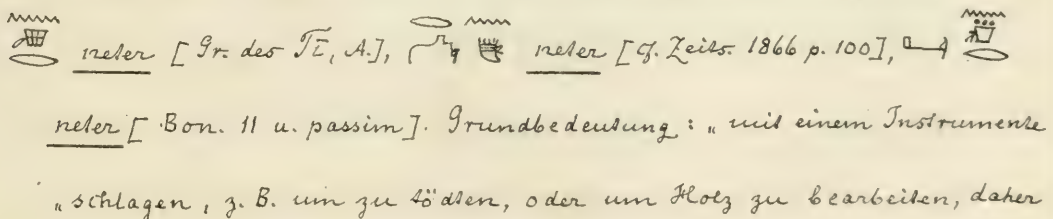 neter [Gr. des Ti, A.], neter [cf. Zeits. 1866 p. 100],
neter [Bon. 11 u. passim]. Grundbedeutung: „mit einem Instrumente
„schlagen, z. B. um zu tödten, oder um Holz zu bearbeiten, daher